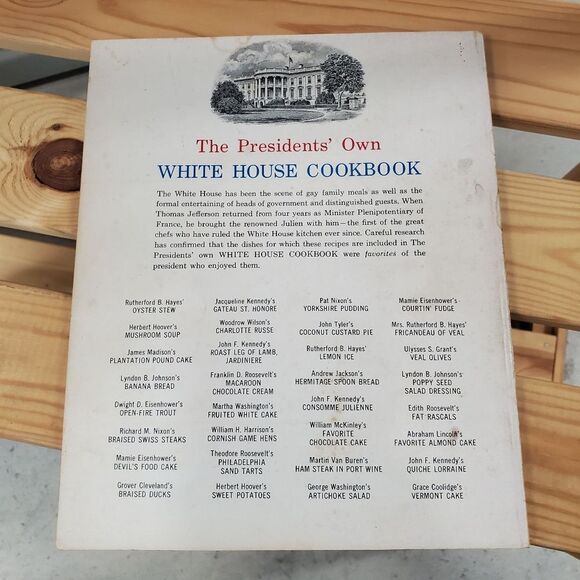 The Presidents' Own
WHITE HOUSE COOKBOOK
The White House has been the scene of gay family meals as well as the
formal entertaining of heads of government and distinguished guests. When
Thomas Jefferson returned from four years as Minister Plenipotentiary of
France, he brought the renowned Julien with him—the first of the great
chefs who have ruled the White House kitchen ever since. Careful research
has confirmed that the dishes for which these recipes are included in The
Presidents' own WHITE HOUSE COOKBOOK were favorites of the
president who enjoyed them.
Rutherford B. Hayes'
OYSTER STEW
Herbert Hoover's
MUSHROOM SOUP
James Madison's
PLANTATION POUND CAKE
Lyndon B. Johnson's
BANANA BREAD
Dwight D. Eisenhower's
OPEN-FIRE TROUT
Richard M. Nixon's
BRAISED SWISS STEAKS
Mamie Eisenhower's
DEVIL'S FOOD CAKE
Grover Cleveland's
BRAISED DUCKS
Jacqueline Kennedy's
GATEAU ST. HONORE
Woodrow Wilson's
CHARLOTTE RUSSE
John F. Kennedy's
ROAST LEG OF LAMB,
JARDINIERE
Franklin D. Roosevelt's
MACAROON
CHOCOLATE CREAM
Martha Washington's
FRUITED WHITE CAKE
William H. Harrison's
CORNISH GAME HENS
Theodore Roosevelt's
PHILADELPHIA
SAND TARTS
Herbert Hoover's
SWEET POTATOES
Pat Nixon's
YORKSHIRE PUDDING
John Tyler's
COCONUT CUSTARD PIE
Rutherford B. Hayes'
LEMON ICE
Andrew Jackson's
HERMITAGE SPOON BREAD
John F. Kennedy's
CONSOMME JULIENNE
William McKinley's
FAVORITE
CHOCOLATE CAKE
Martin Van Buren's
HAM STEAK IN PORT WINE
George Washington's
ARTICHOKE SALAD
Mamie Eisenhower's
COURTIN' FUDGE
Mrs. Rutherford B. Hayes'
FRICANDEAU OF VEAL
Ulysses S. Grant's
VEAL OLIVES
Lyndon B. Johnson's
POPPY SEED
SALAD DRESSING
Edith Roosevelt's
FAT RASCALS
Abraham Lincoln's
FAVORITE ALMOND CAKE
John F. Kennedy's
QUICHE LORRAINE
Grace Coolidge's
VERMONT CAKE